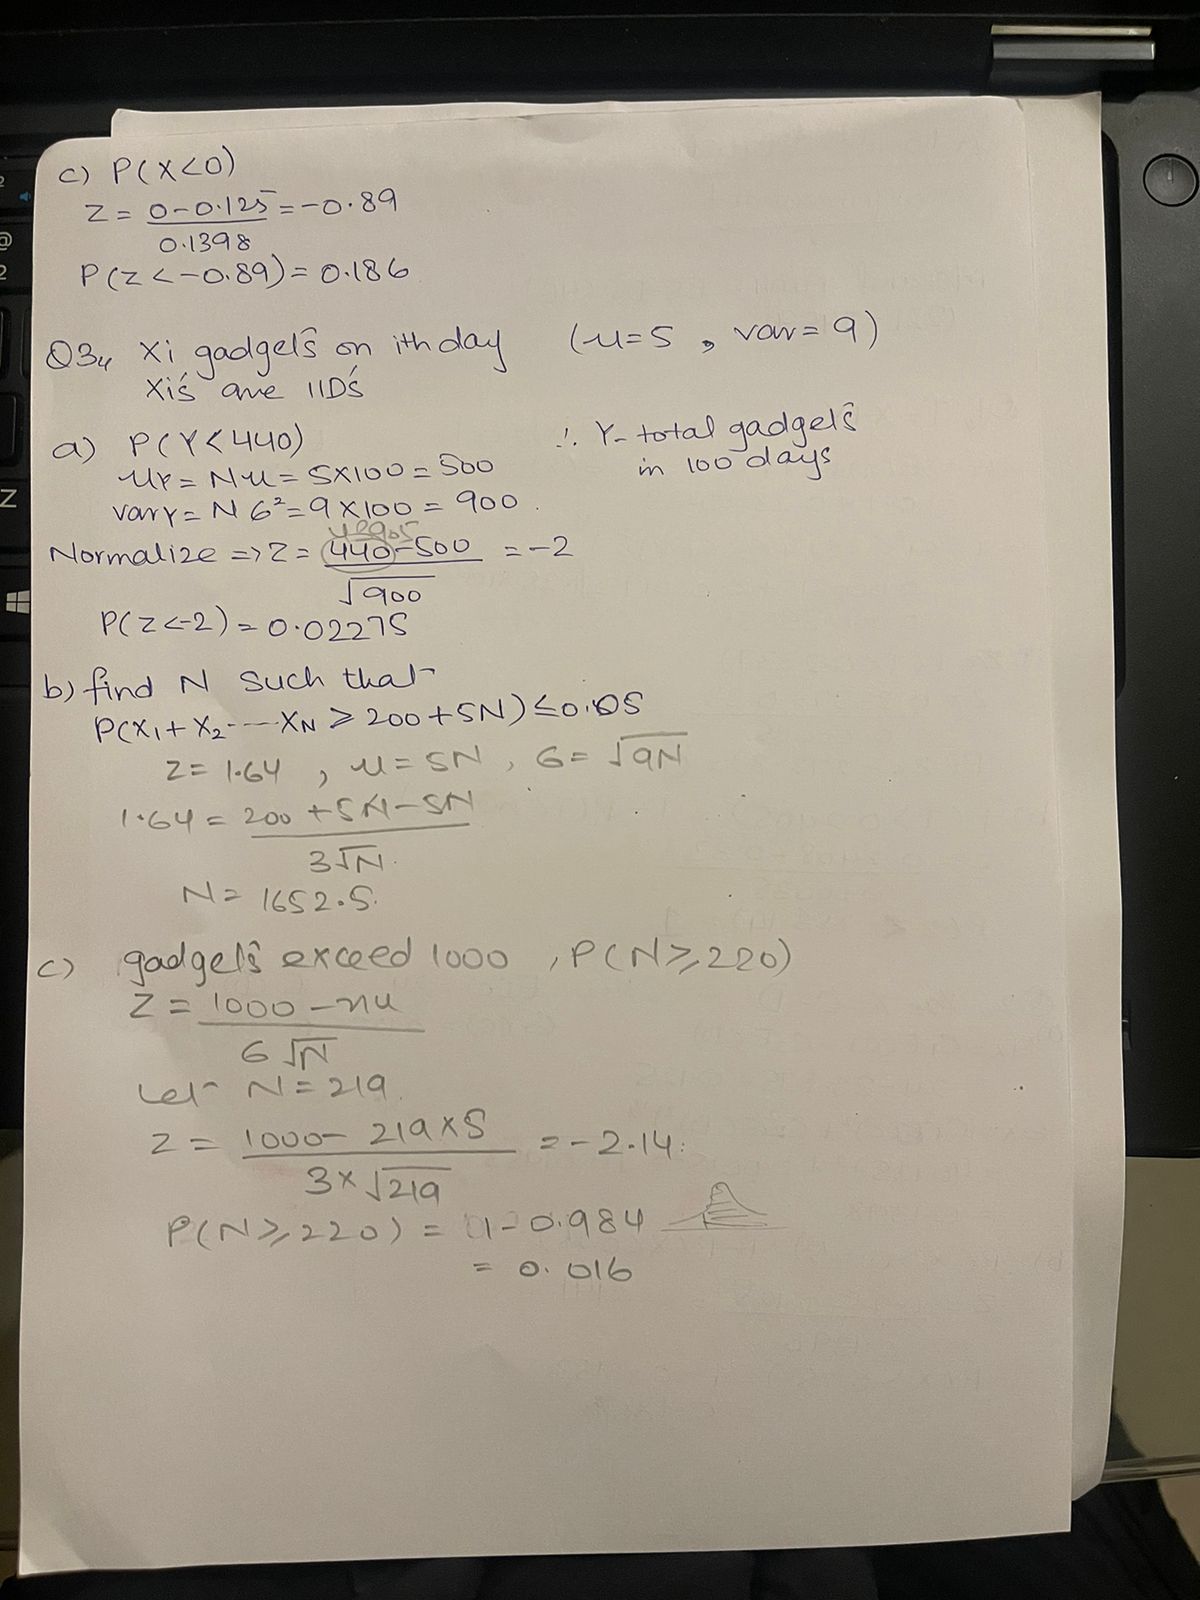 c) P(X<0)
Z = 0-0.125 = -0.89
0.1398
P(Z<-0.89) = 0.186
Q3. Xi gadgets on ith day (μ=5, var=9)
Xi's are IID's
a) P(Y<440) ∴ Y- total gadgets
in 100 days
μy = Nμ = 5×100 = 500
vary = Nσ² = 9×100 = 900.
Normalize => Z = 440-500 = -2
√900
P(Z<-2) = 0.02275
b) find N such that
P(X₁+X₂-----XN ≥ 200+5N) ≤ 0.05
Z = 1.64, μ = 5N, σ = √9N
1.64 = 200+5N-5N
3√N.
N = 1652.5.
c) gadgets exceed 1000, P(N≥220)
Z = 1000-nμ
σ√N
Let N = 219.
Z = 1000- 219×5 = -2.14.
3×√219
P(N≥220) = 1-0.984
= 0.016